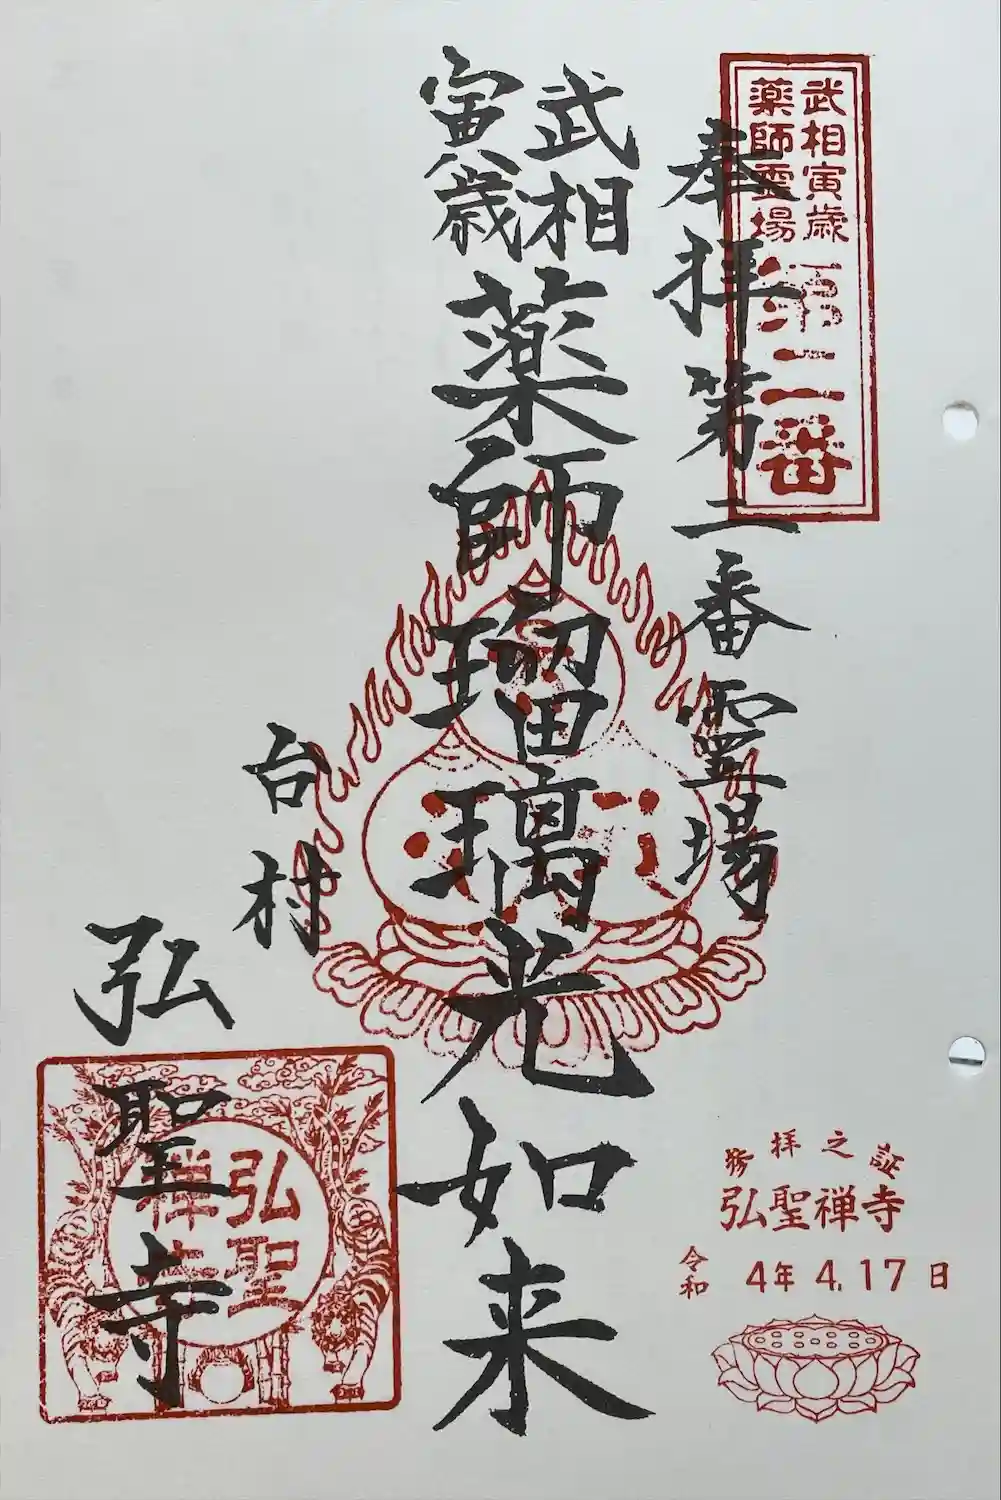 武相寅歳
薬師霊場
第二番
奉拝第二番霊場
武相
寅歳
薬師瑠璃光如来
台村
弘聖寺
弘聖
禅寺
拝之証
弘聖禅寺
令和4年4.17日